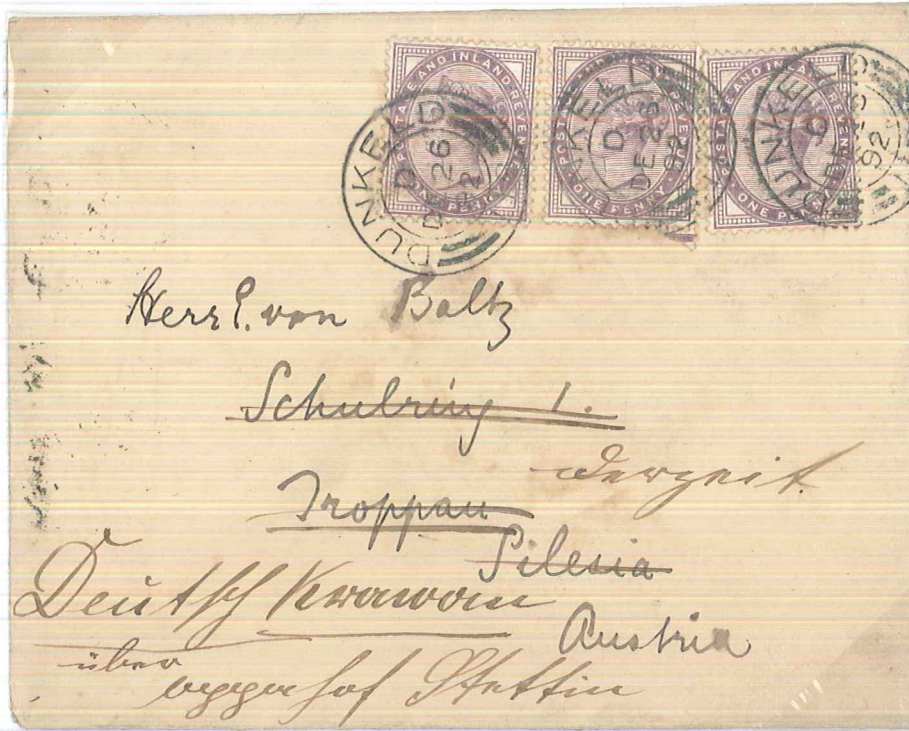 POSTAGE AND INLAND REVENUE
ONE PENNY
DUNKELD
D
DE 26
92
POSTAGE AND INLAND REVENUE
ONE PENNY
DUNKELD
D
DE 26
92
POSTAGE AND INLAND REVENUE
ONE PENNY
DUNKELD
92
Herr von Boltz
Schulring 1.
derzeit
Troppau
Silesia
Deutsch Krawarn
Austria
über
hof Stettin